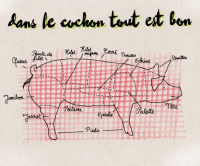 dans le cochon tout est bon
Pointe de filet
Filet
Filet mignon
Carré
Travers
Échine
Oreilles
Queue
Jambon
Jarret
Poitrine
Épaule
Palette
Tête
Pieds